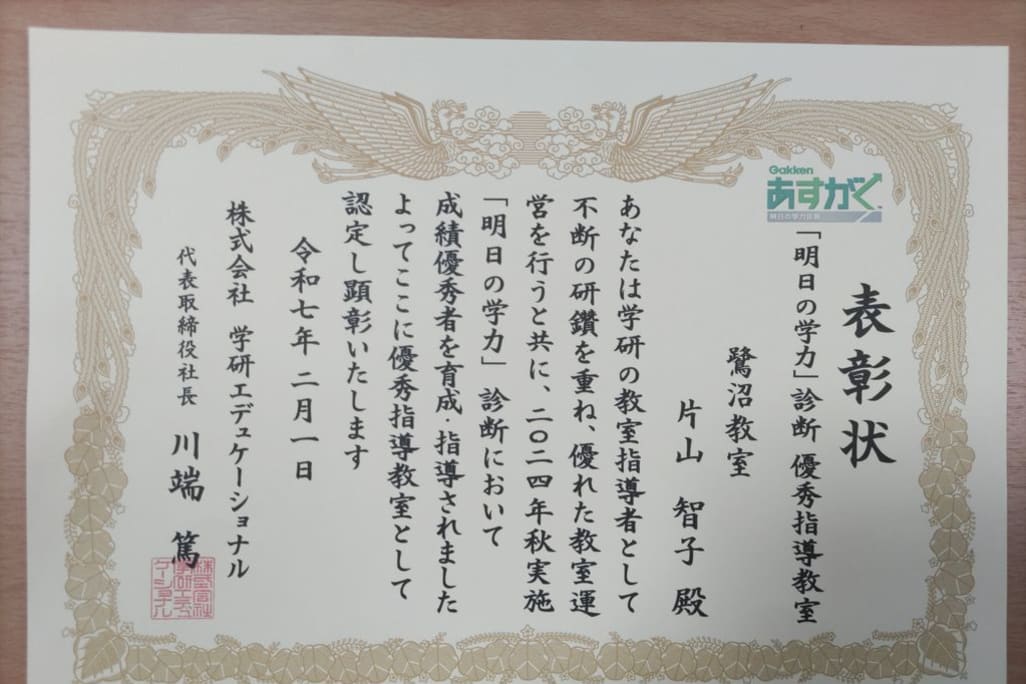 表彰状
Gakken
あすがく
「明日の学力」診断 優秀指導教室
鷺沼教室
片山 智子 殿
あなたは学研の教室指導者として
不断の研鑽を重ね、優れた教室運
営を行うと共に、二〇二四年秋実施
「明日の学力」診断において
成績優秀者を育成・指導されました
よってここに優秀指導教室として
認定し顕彰いたします
令和七年 二月一日
株式会社 学研エデュケーショナル
代表取締役社長 川端 篤